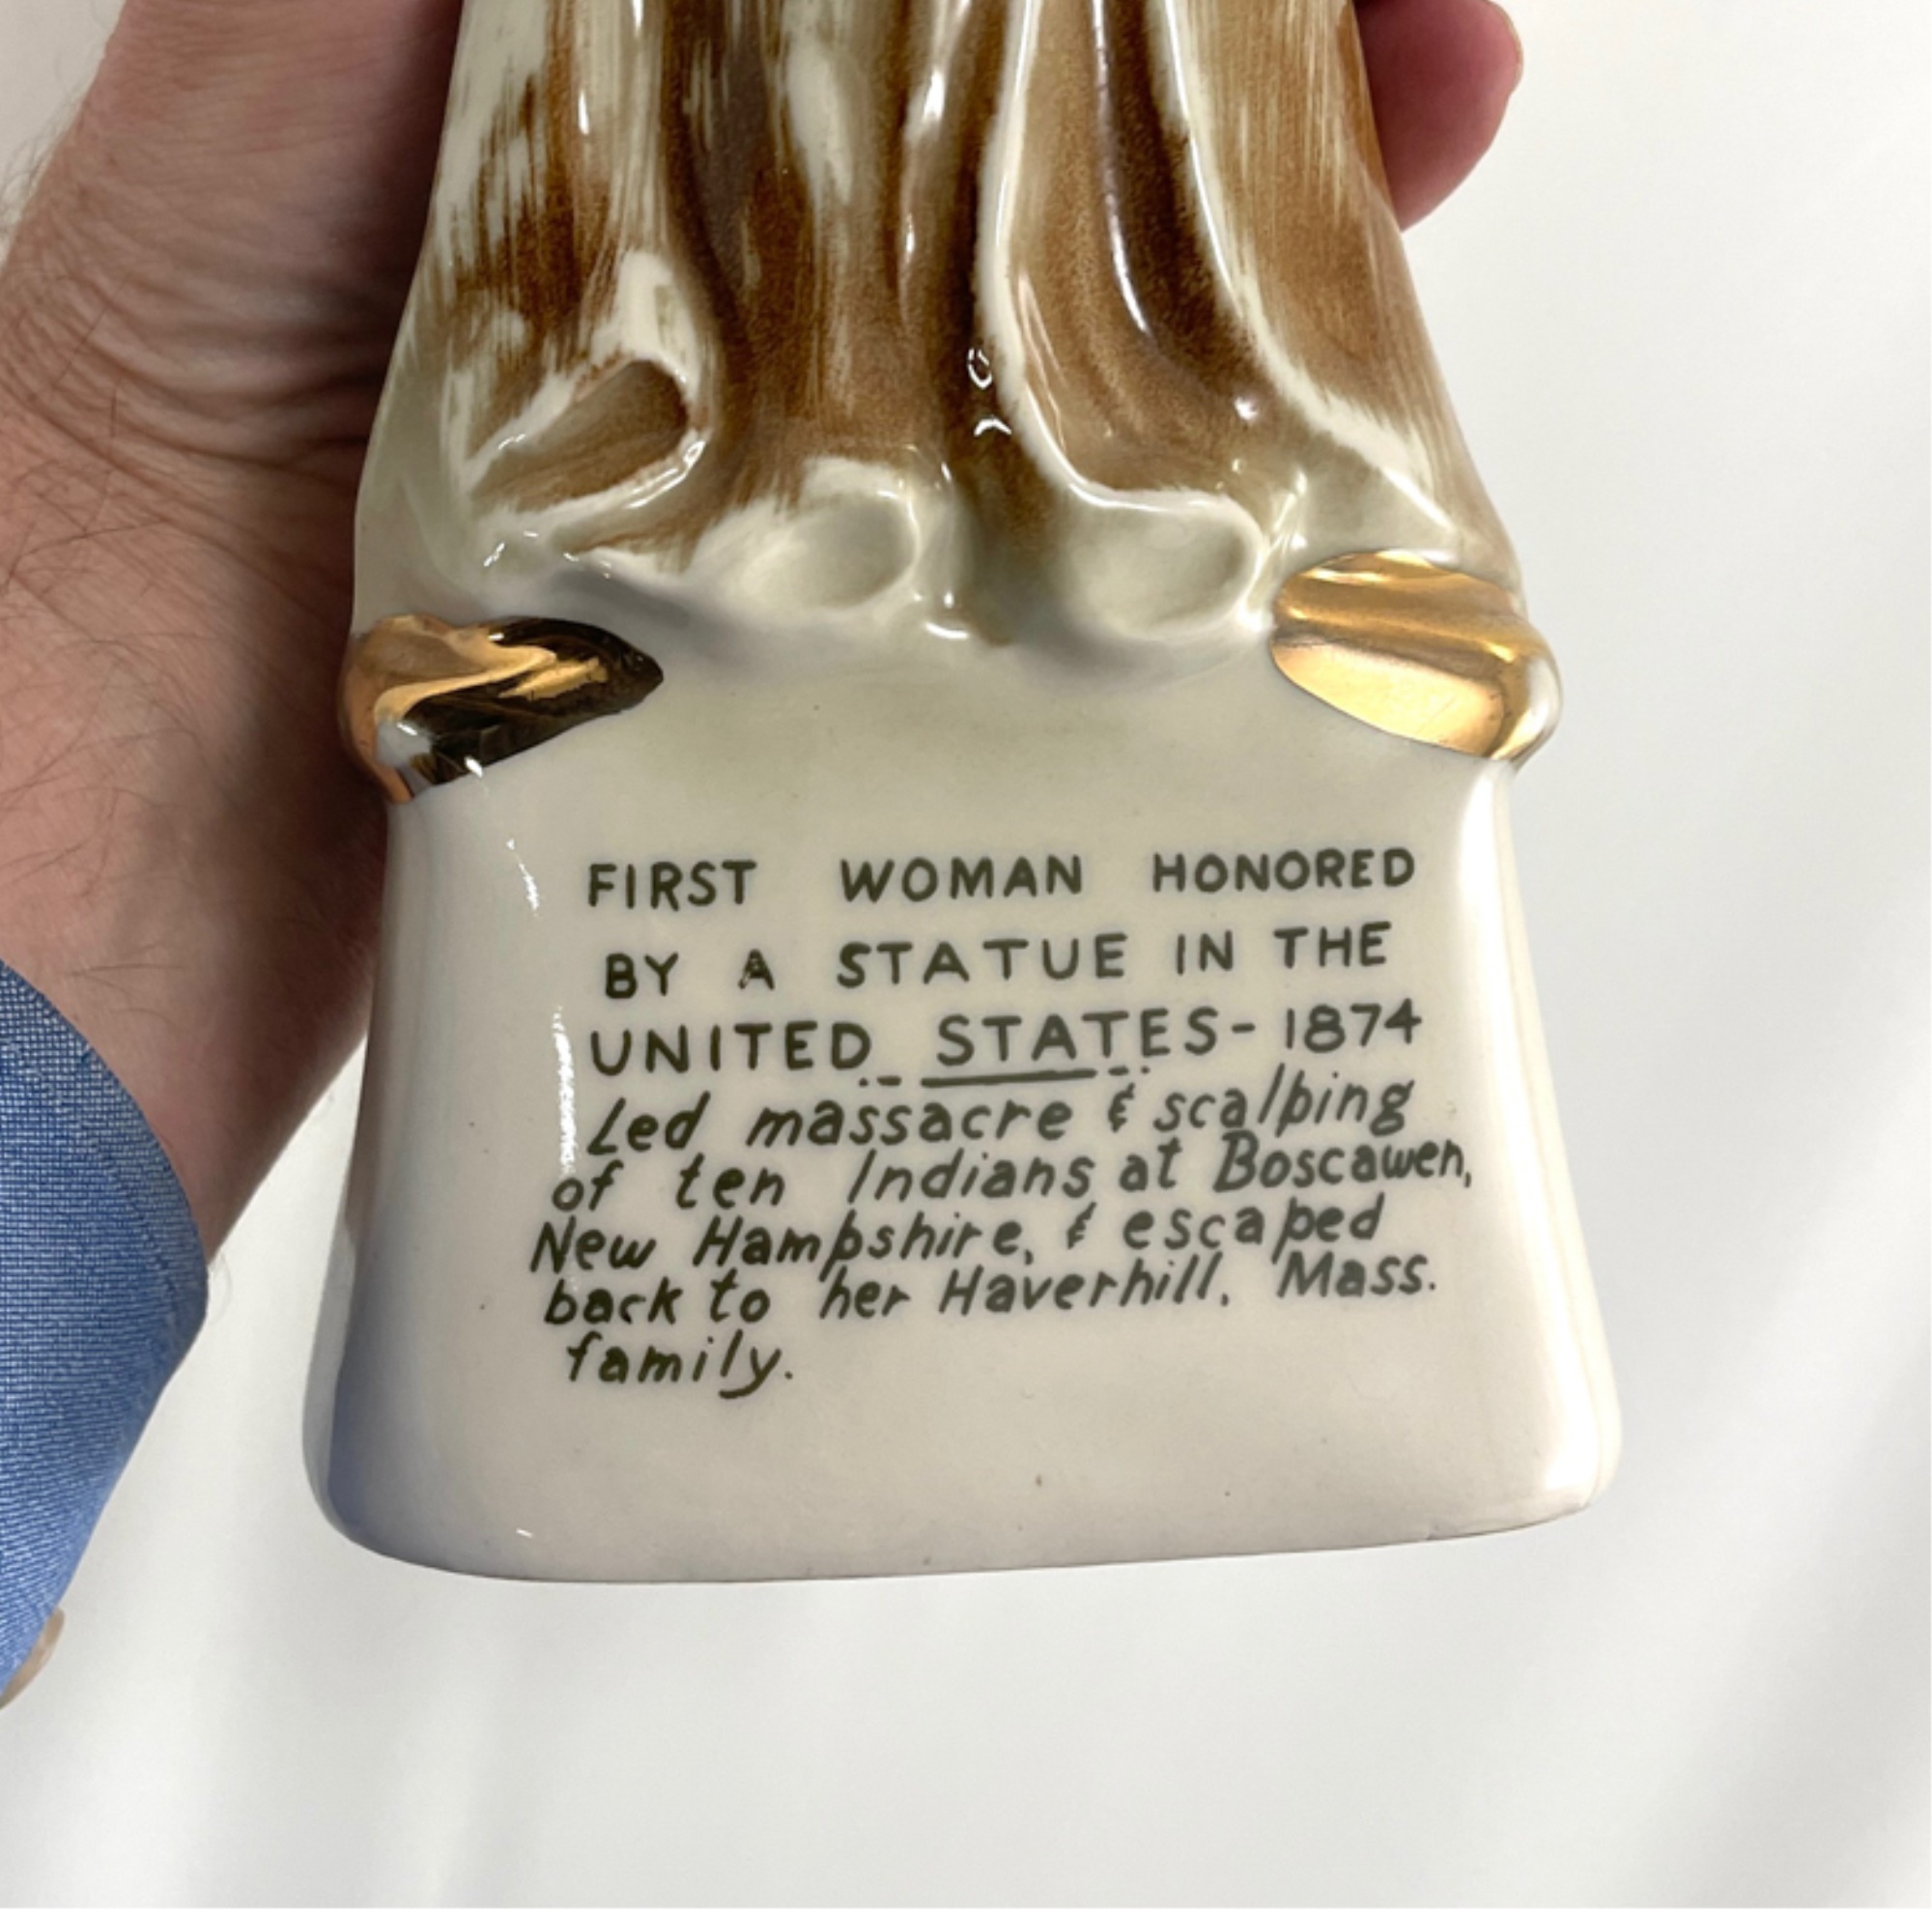 FIRST WOMAN HONORED
BY A STATUE IN THE
UNITED STATES - 1874
Led massacre & scalping
of ten Indians at Boscawen,
New Hampshire, & escaped
back to her Haverhill, Mass.
family.